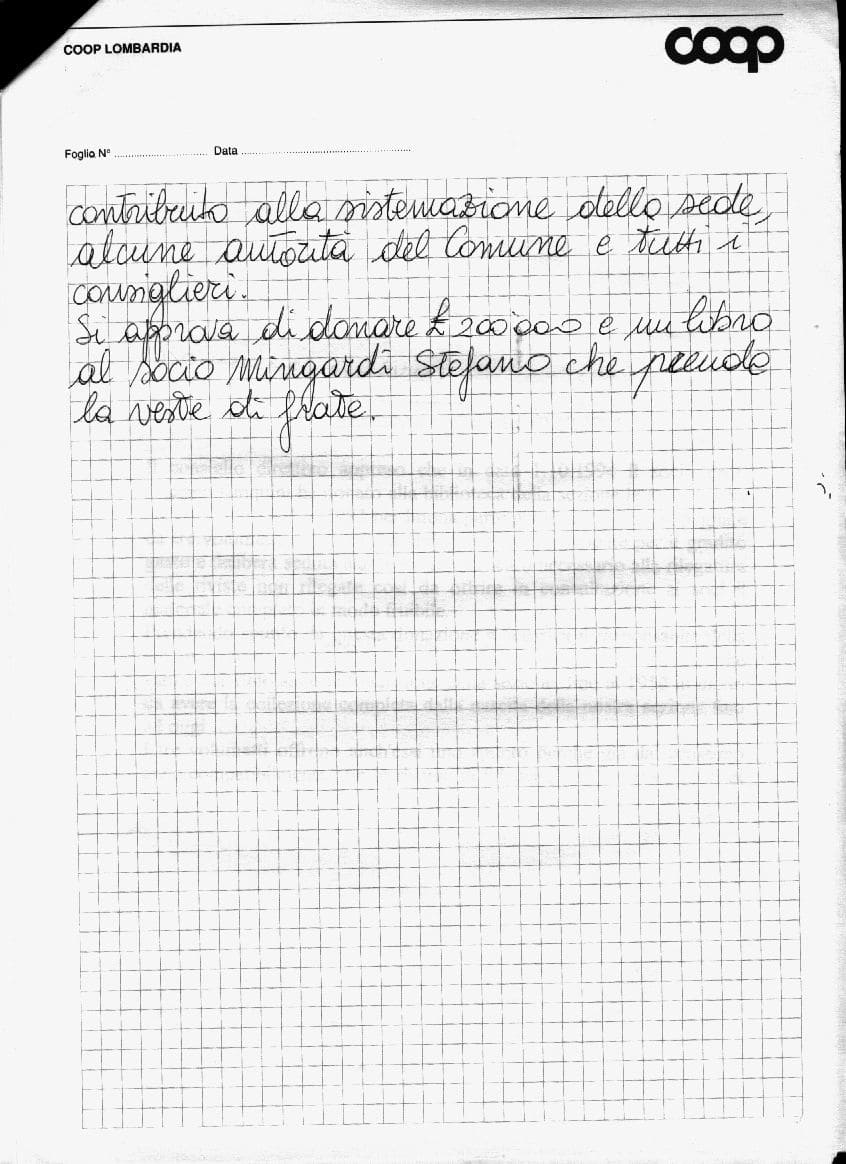 COOP LOMBARDIA
coop
Foglio N° ............................... Data ....................................................
contribuito alla sistemazione della sede,
alcune autorità del Comune e tutti i
consiglieri.
Si approva di donare £ 200'000 e un libro
al socio Mingardi Stefano che prende
la veste di frate.